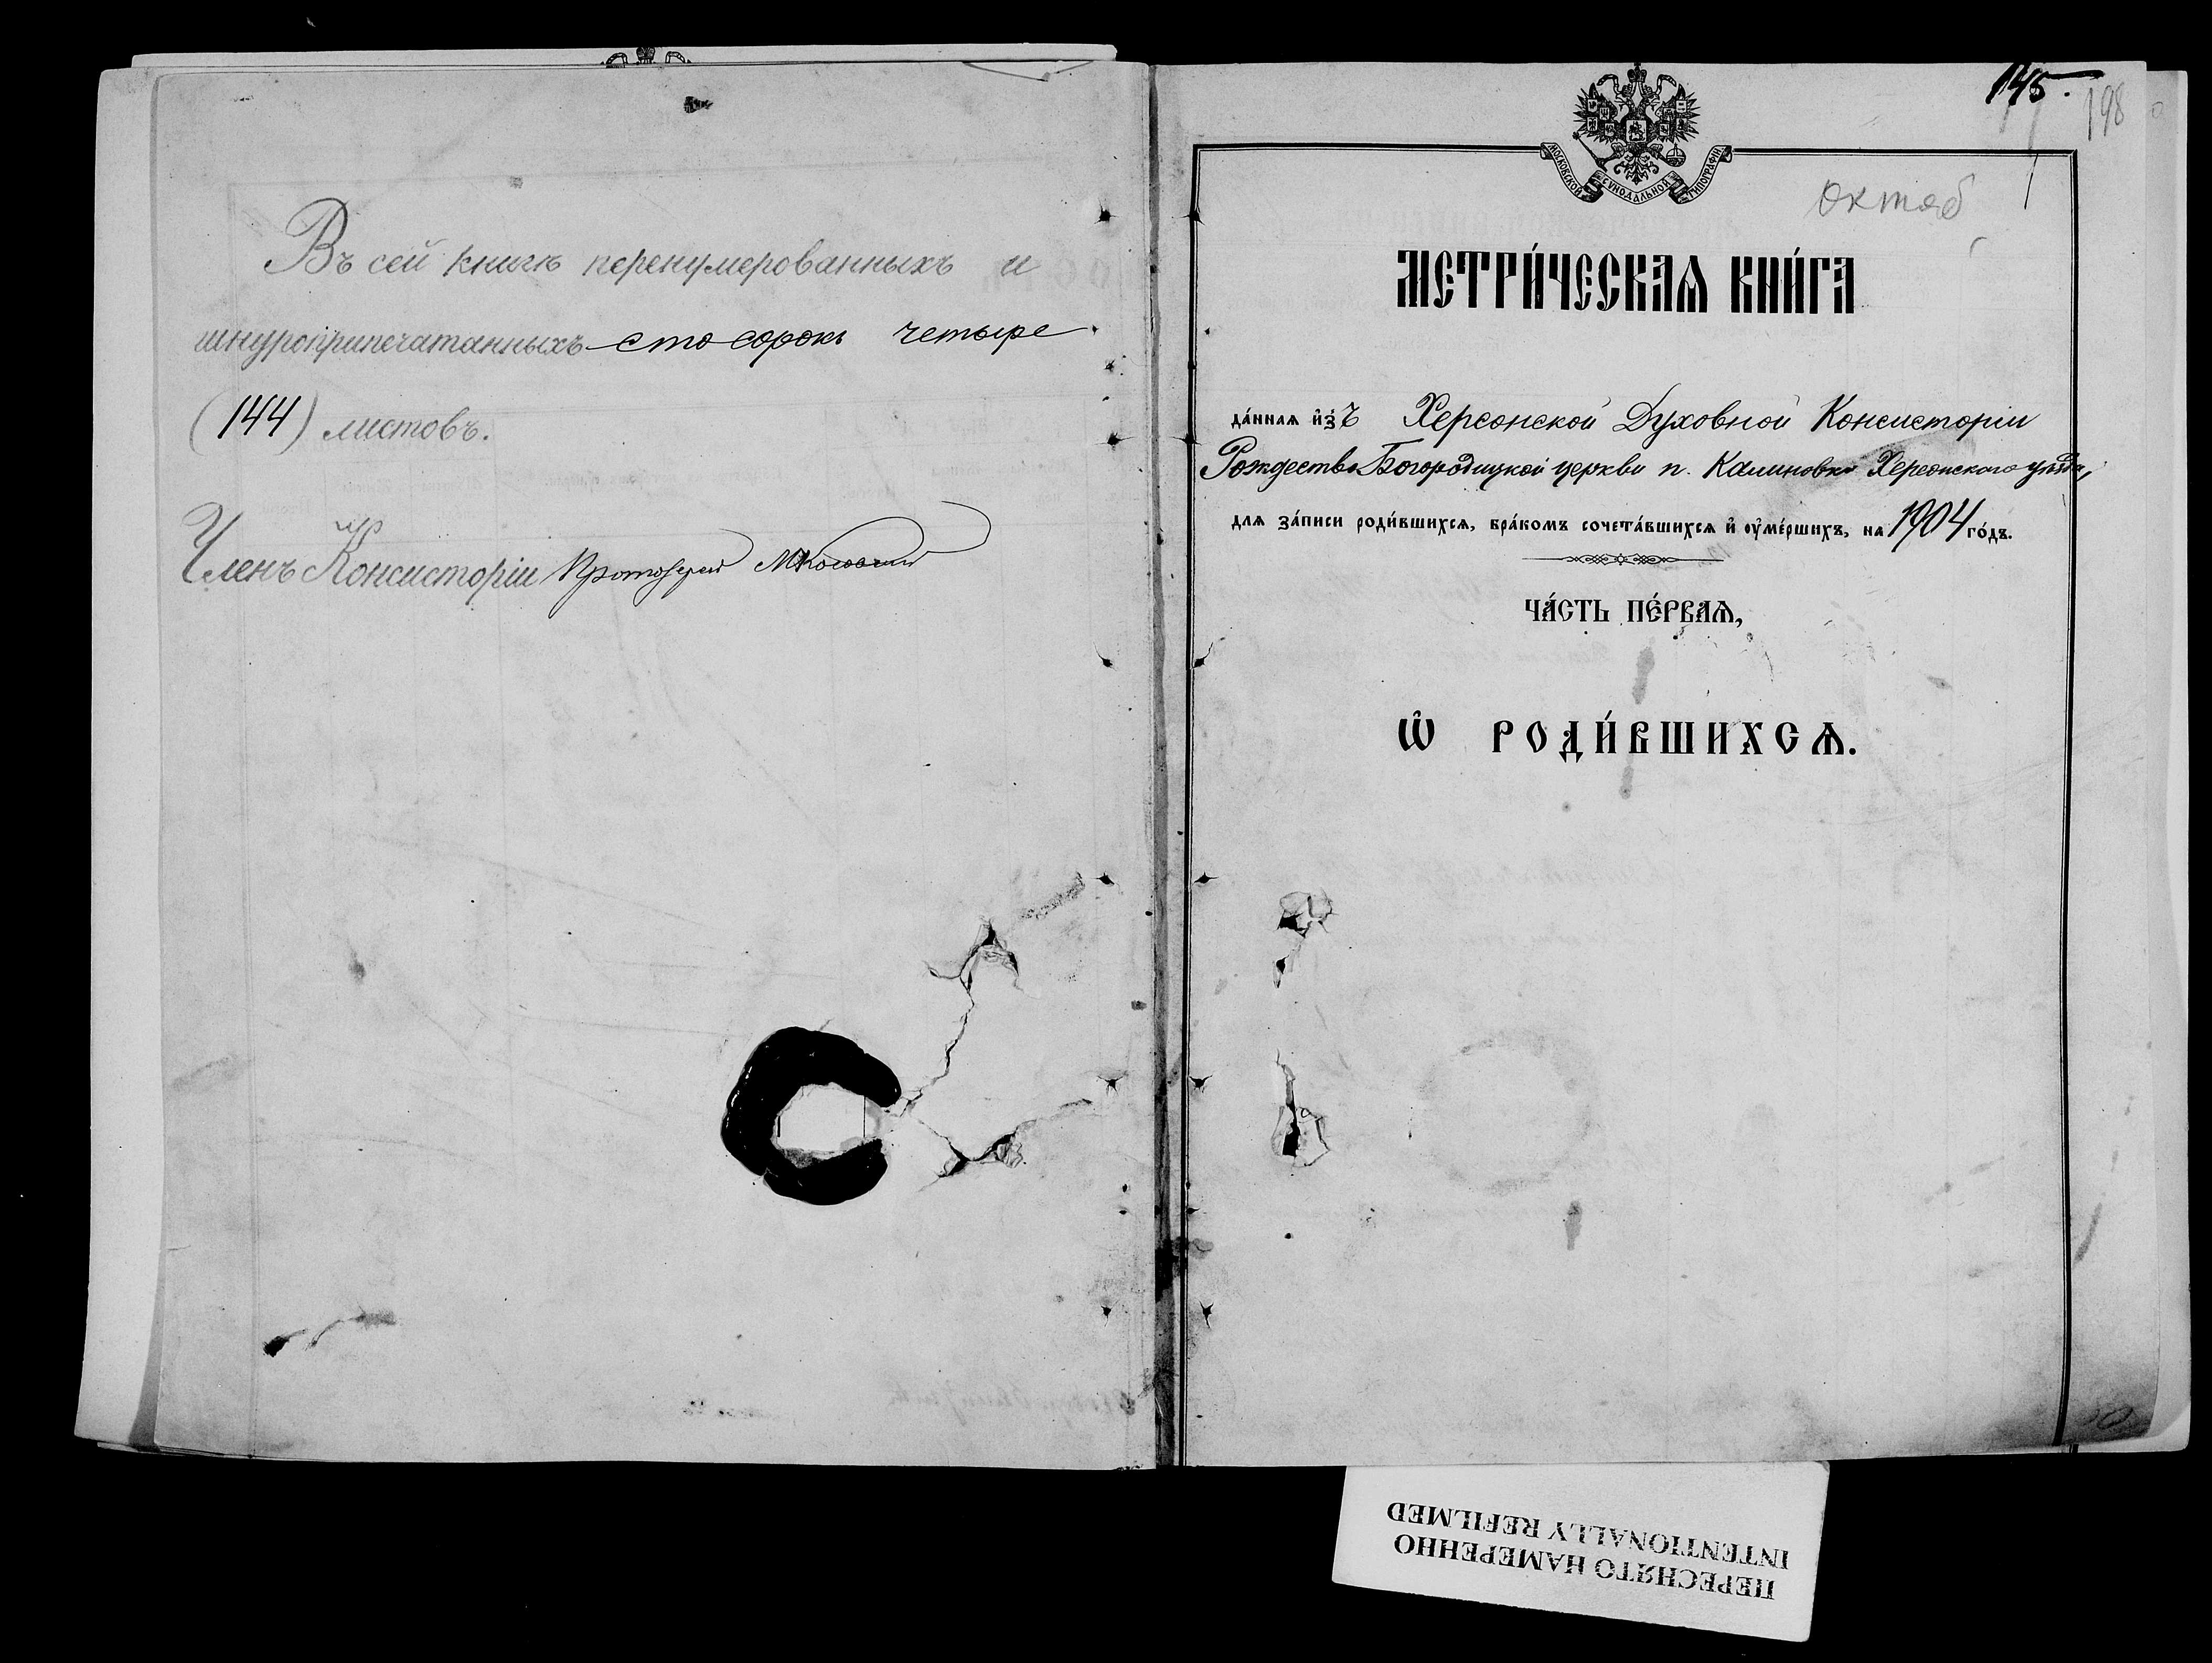 Въ сей книгѣ перенумерованныхъ и
шнуроприпечатанныхъ сто сорокъ четыре
(144) листовъ.
Членъ Консисторіи Протоіерей
145.
198
МОСКОВСКОЙ СѴНОДАЛЬНОЙ ТИПОГРАФІИ
октяб
МЕТРИ́ЧЕСКАѦ КНИ́ГА
да́ннаѧ и҆зъ Херсонской Духовной Консисторіи
Рождество-Богородицкой церкви п. Калиновки Херсонскаго уѣзда,
длѧ за́писи роди́вшихсѧ, бра́комъ сочета́вшихсѧ и҆ ᲂу҆ме́ршихъ, на 1904 го́дъ.
ЧА́СТЬ ПЕ́РВАѦ,
Ѡ҆ РОДИ́ВШИХСѦ.
ПЕРЕСНЯТО НАМЕРЕННО
INTENTIONALLY REFILMED